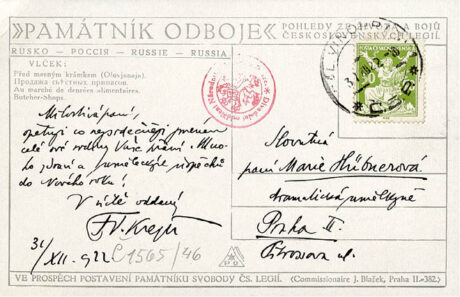 »PAMÁTNÍK ODBOJE«
POHLEDY ZE ŽIVOTA A BOJŮ
ČESKOSLOVENSKÝCH LEGIÍ.
RUSKO – РОССІЯ – RUSSIE – RUSSIA
VLČEK:
Před masným krámkem (Olovjanaja).
Продажа съѣстныхъ припасовъ.
Au marché de denrées alimentaires.
Butcher-Shops.
Milostivá paní,
opětuji co nejsrdečněji jménem
celé své rodiny Vaše přání. Mno-
ho zdraví a uměleckých úspěchů
do Nového roku!
V úctě oddaný
F. V. Krejčí
31/XII. 922
C 1565/46
Slovutná
paní Marie Hübnerová
dramatická umělkyně
Praha II.
ul.
ČSR
PO
VE PROSPĚCH POSTAVENÍ PAMÁTNÍKU SVOBODY ČS. LEGIÍ.
(Commissionaire J. Blažek, Praha II.-382.)